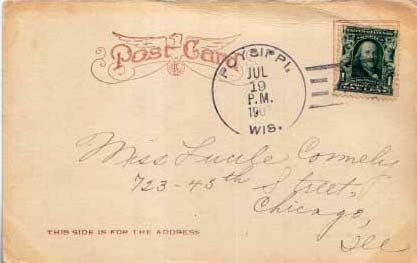 Post Card
POYSIPPI,
JUL
19
P.M.
190
WIS.
Miss Lucile
723-45th Street,
Chicago,
Ill
THIS SIDE IS FOR THE ADDRESS